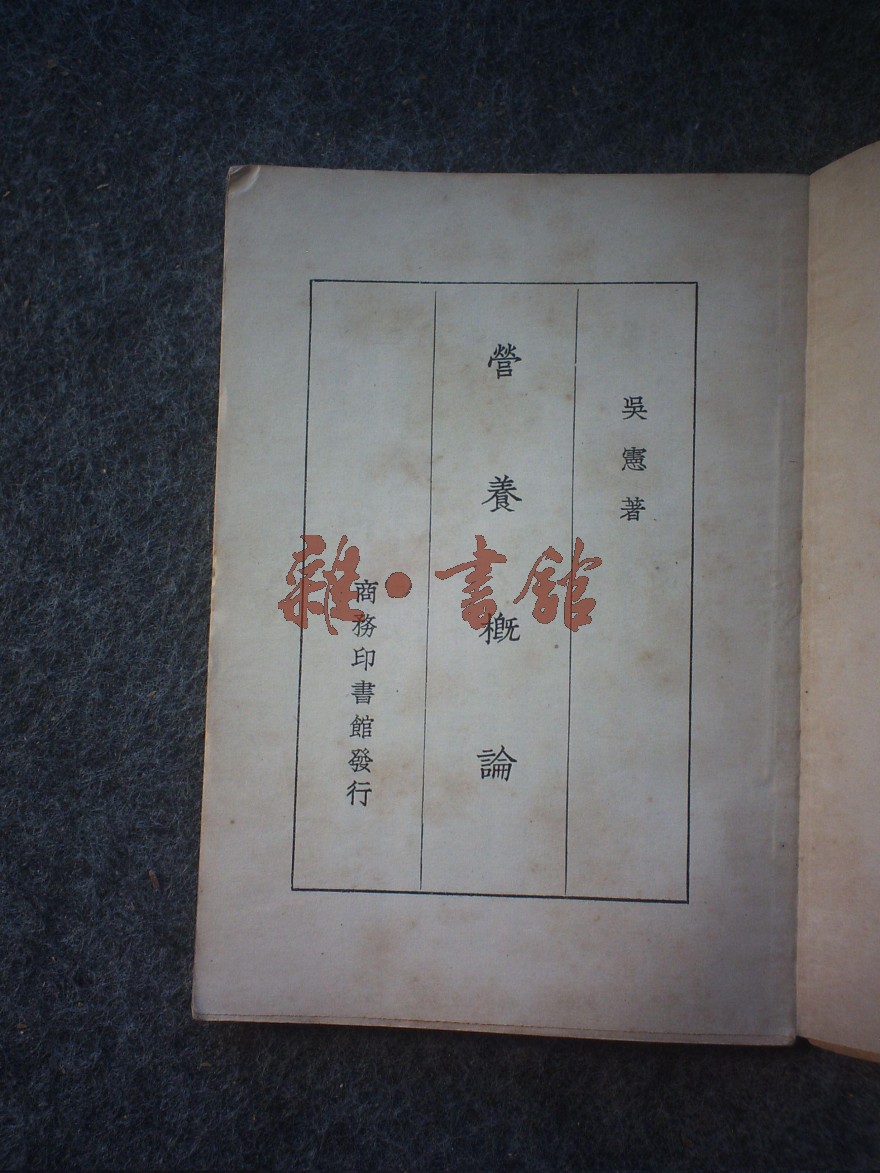 吳憲著
營養概論
商務印書館發行
雜·書館